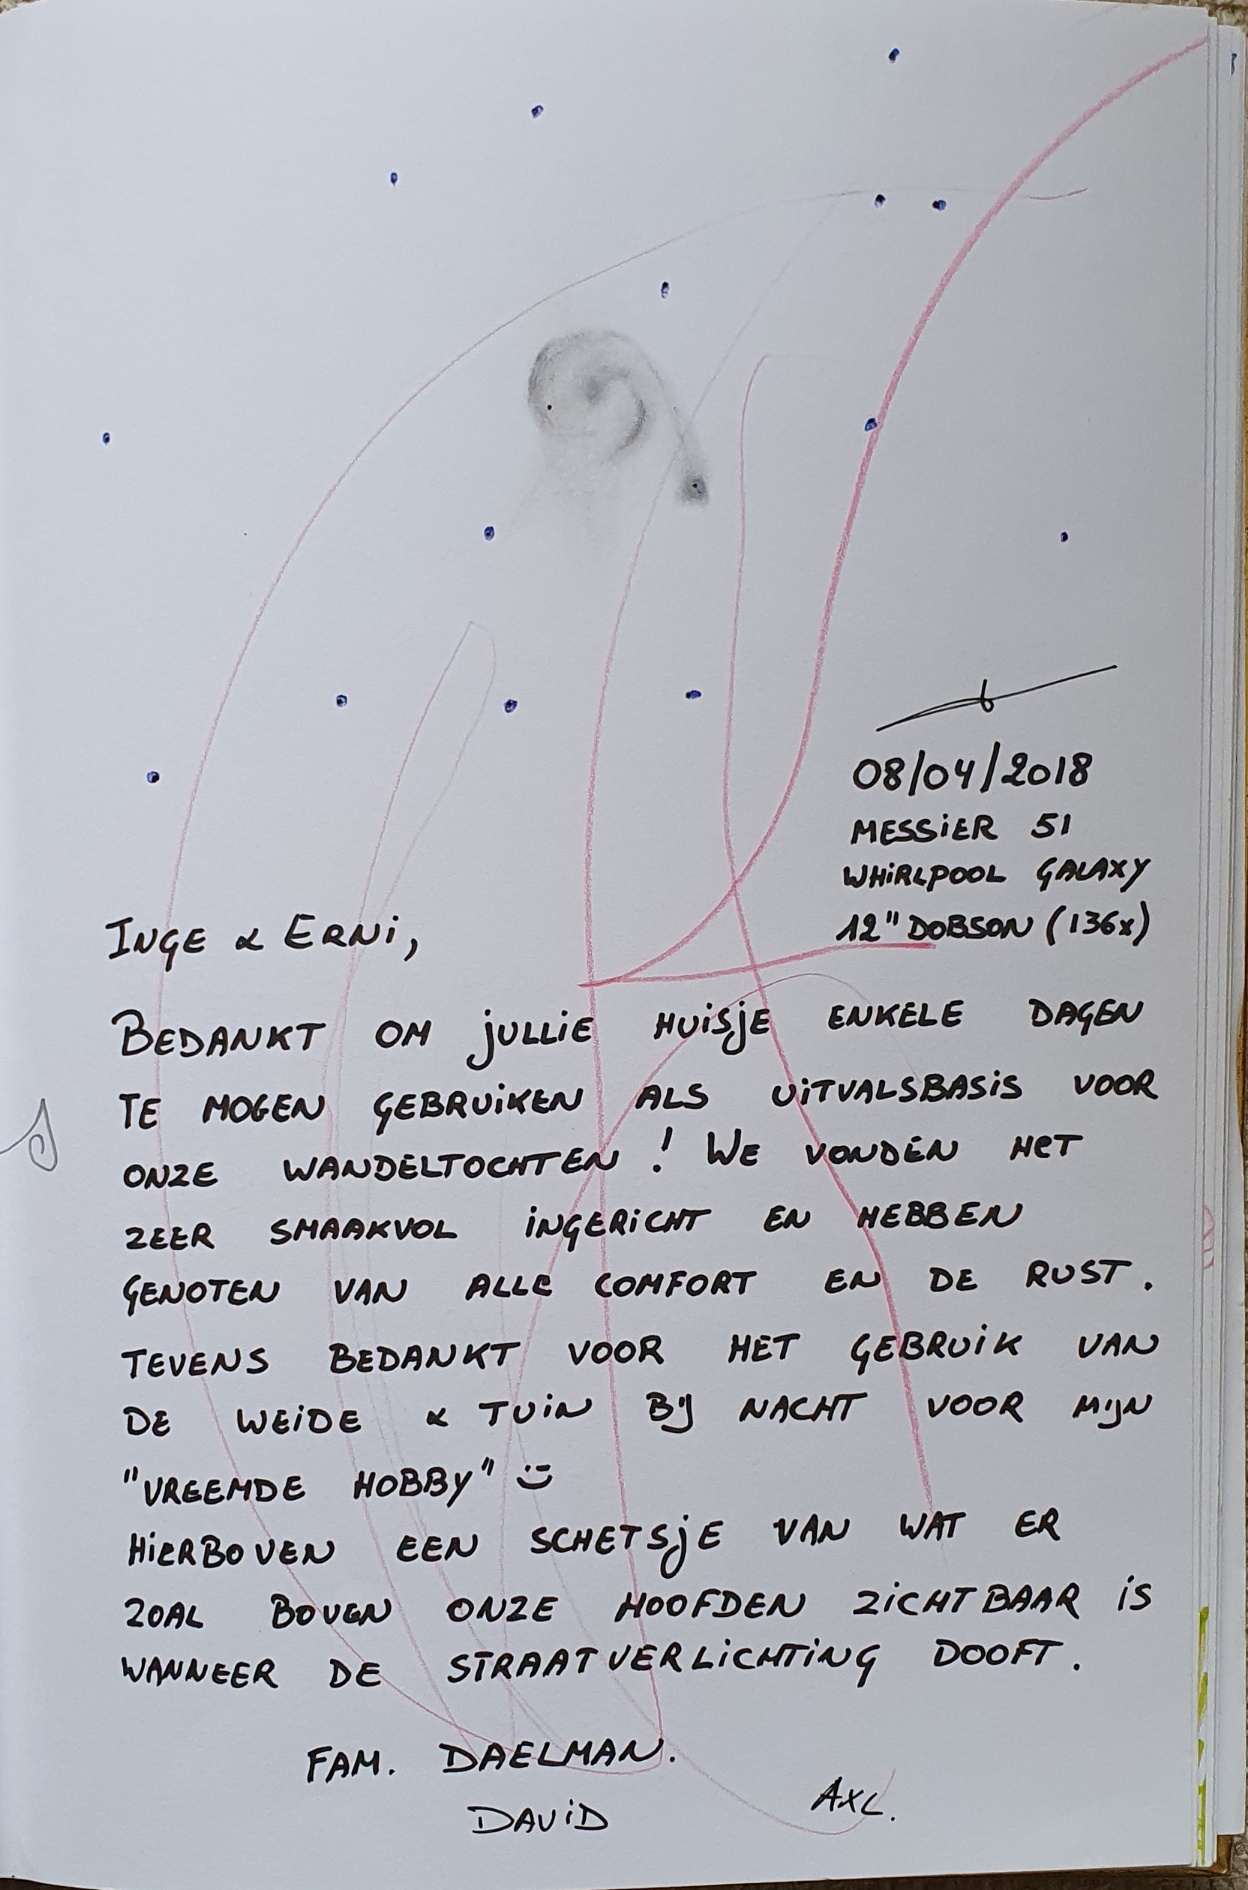 08/04/2018
MESSIER 51
WHIRLPOOL GALAXY
12" DOBSON (136x)
INGE & ERNI,
BEDANKT OM JULLIE HUISJE ENKELE DAGEN
TE MOGEN GEBRUIKEN ALS UITVALSBASIS VOOR
ONZE WANDELTOCHTEN! WE VONDEN HET
ZEER SMAAKVOL INGERICHT EN HEBBEN
GENOTEN VAN ALLE COMFORT EN DE RUST.
TEVENS BEDANKT VOOR HET GEBRUIK VAN
DE WEIDE & TUIN BIJ NACHT VOOR MIJN
"VREEMDE HOBBY" :)
HIERBOVEN EEN SCHETSJE VAN WAT ER
ZOAL BOVEN ONZE HOOFDEN ZICHTBAAR IS
WANNEER DE STRAATVERLICHTING DOOFT.
FAM. DAELMAN.
DAVID AXL.